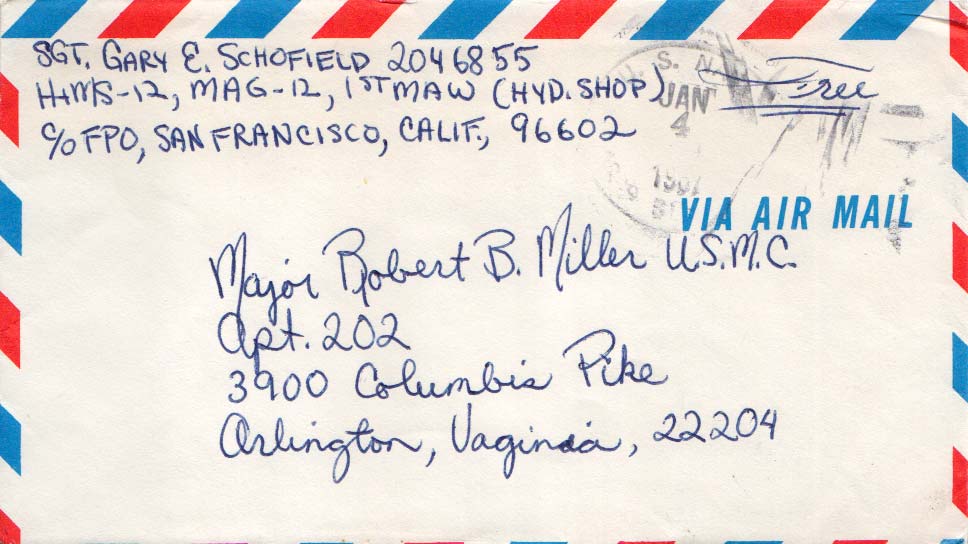 SGT. GARY E. SCHOFIELD 2046855
H+MS-12, MAG-12, 1ST MAW (HYD. SHOP)
C/O FPO, SAN FRANCISCO, CALIF., 96602
Free
JAN
4
VIA AIR MAIL
Major Robert B. Miller U.S.M.C.
Apt. 202
3900 Columbia Pike
Arlington, Virginia, 22204